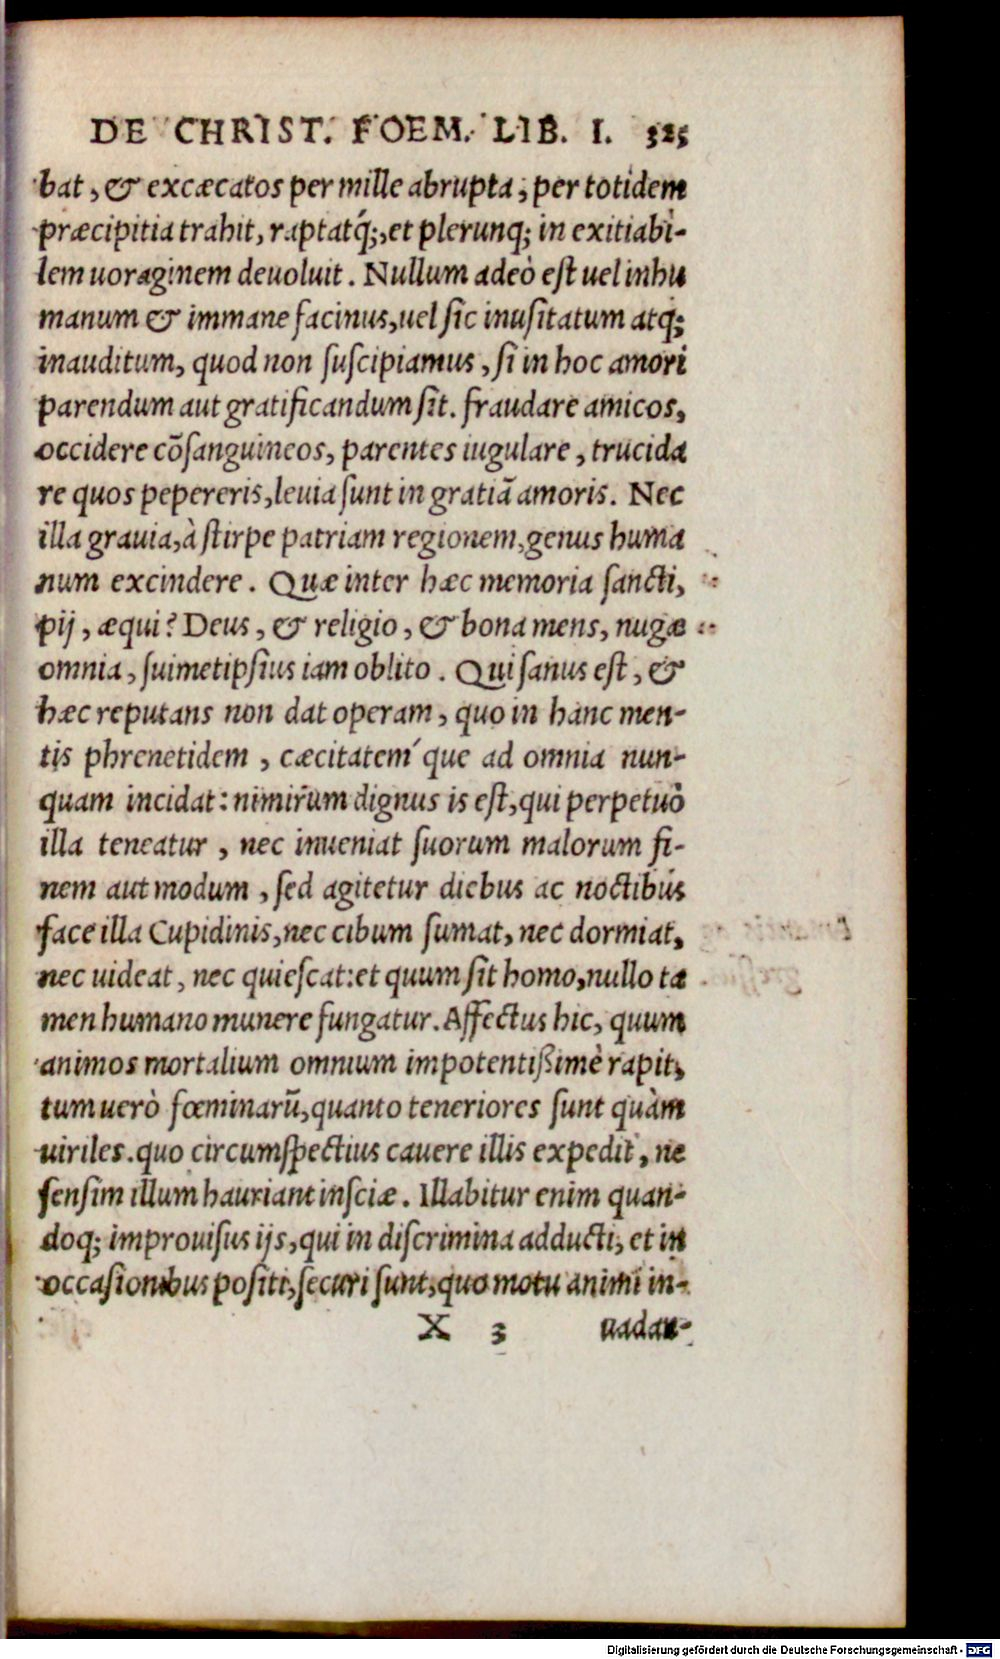 DE CHRIST. FOEM. LIB. I. 325
bat, & excæcatos per mille abrupta, per totidem
præcipitia trahit, raptatq́;, et plerunq; in exitiabi-
lem uoraginem deuoluit. Nullum adeò est uel inhu
manum & immane facinus, uel sic inusitatum atq;
inauditum, quod non suscipiamus, si in hoc amori
parendum aut gratificandum sit. fraudare amicos,
occidere cõsanguineos, parentes iugulare, trucida
re quos pepereris, leuia sunt in gratiã amoris. Nec
illa grauia, à stirpe patriam regionem, genus huma
num excindere. Quæ inter hæc memoria sancti,
pij, æqui? Deus, & religio, & bona mens, nugæ
omnia, suimetipsius iam oblito. Qui sanus est, &
hæc reputans non dat operam, quo in hanc men-
tis phrenetidem, cæcitatem´que ad omnia nun-
quam incidat: nimirum dignus is est, qui perpetuò
illa teneatur, nec inueniat suorum malorum fi-
nem aut modum, sed agitetur diebus ac noctibus
face illa Cupidinis, nec cibum sumat, nec dormiat,
nec uideat, nec quiescat: et quum sit homo, nullo ta
men humano munere fungatur. Affectus hic, quum
animos mortalium omnium impotentißimè rapit,
tum uerò fœminarũ, quanto teneriores sunt quàm
uiriles. quo circumspectius cauere illis expedit, ne
sensim illum hauriant insciæ. Illabitur enim quan-
doq; improuisus ijs, qui in discrimina adducti, et in
occasionibus positi, securi sunt, quo motu animi in-
X 3 uadan-
Digitalisierung gefördert durch die Deutsche Forschungsgemeinschaft - DFG